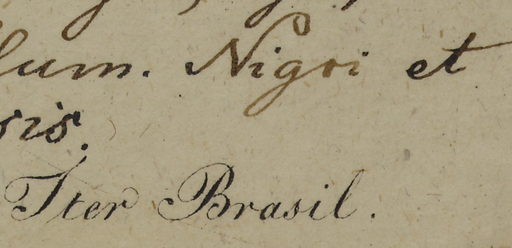 lum. Nigri et
ris.
Iter Brasil.